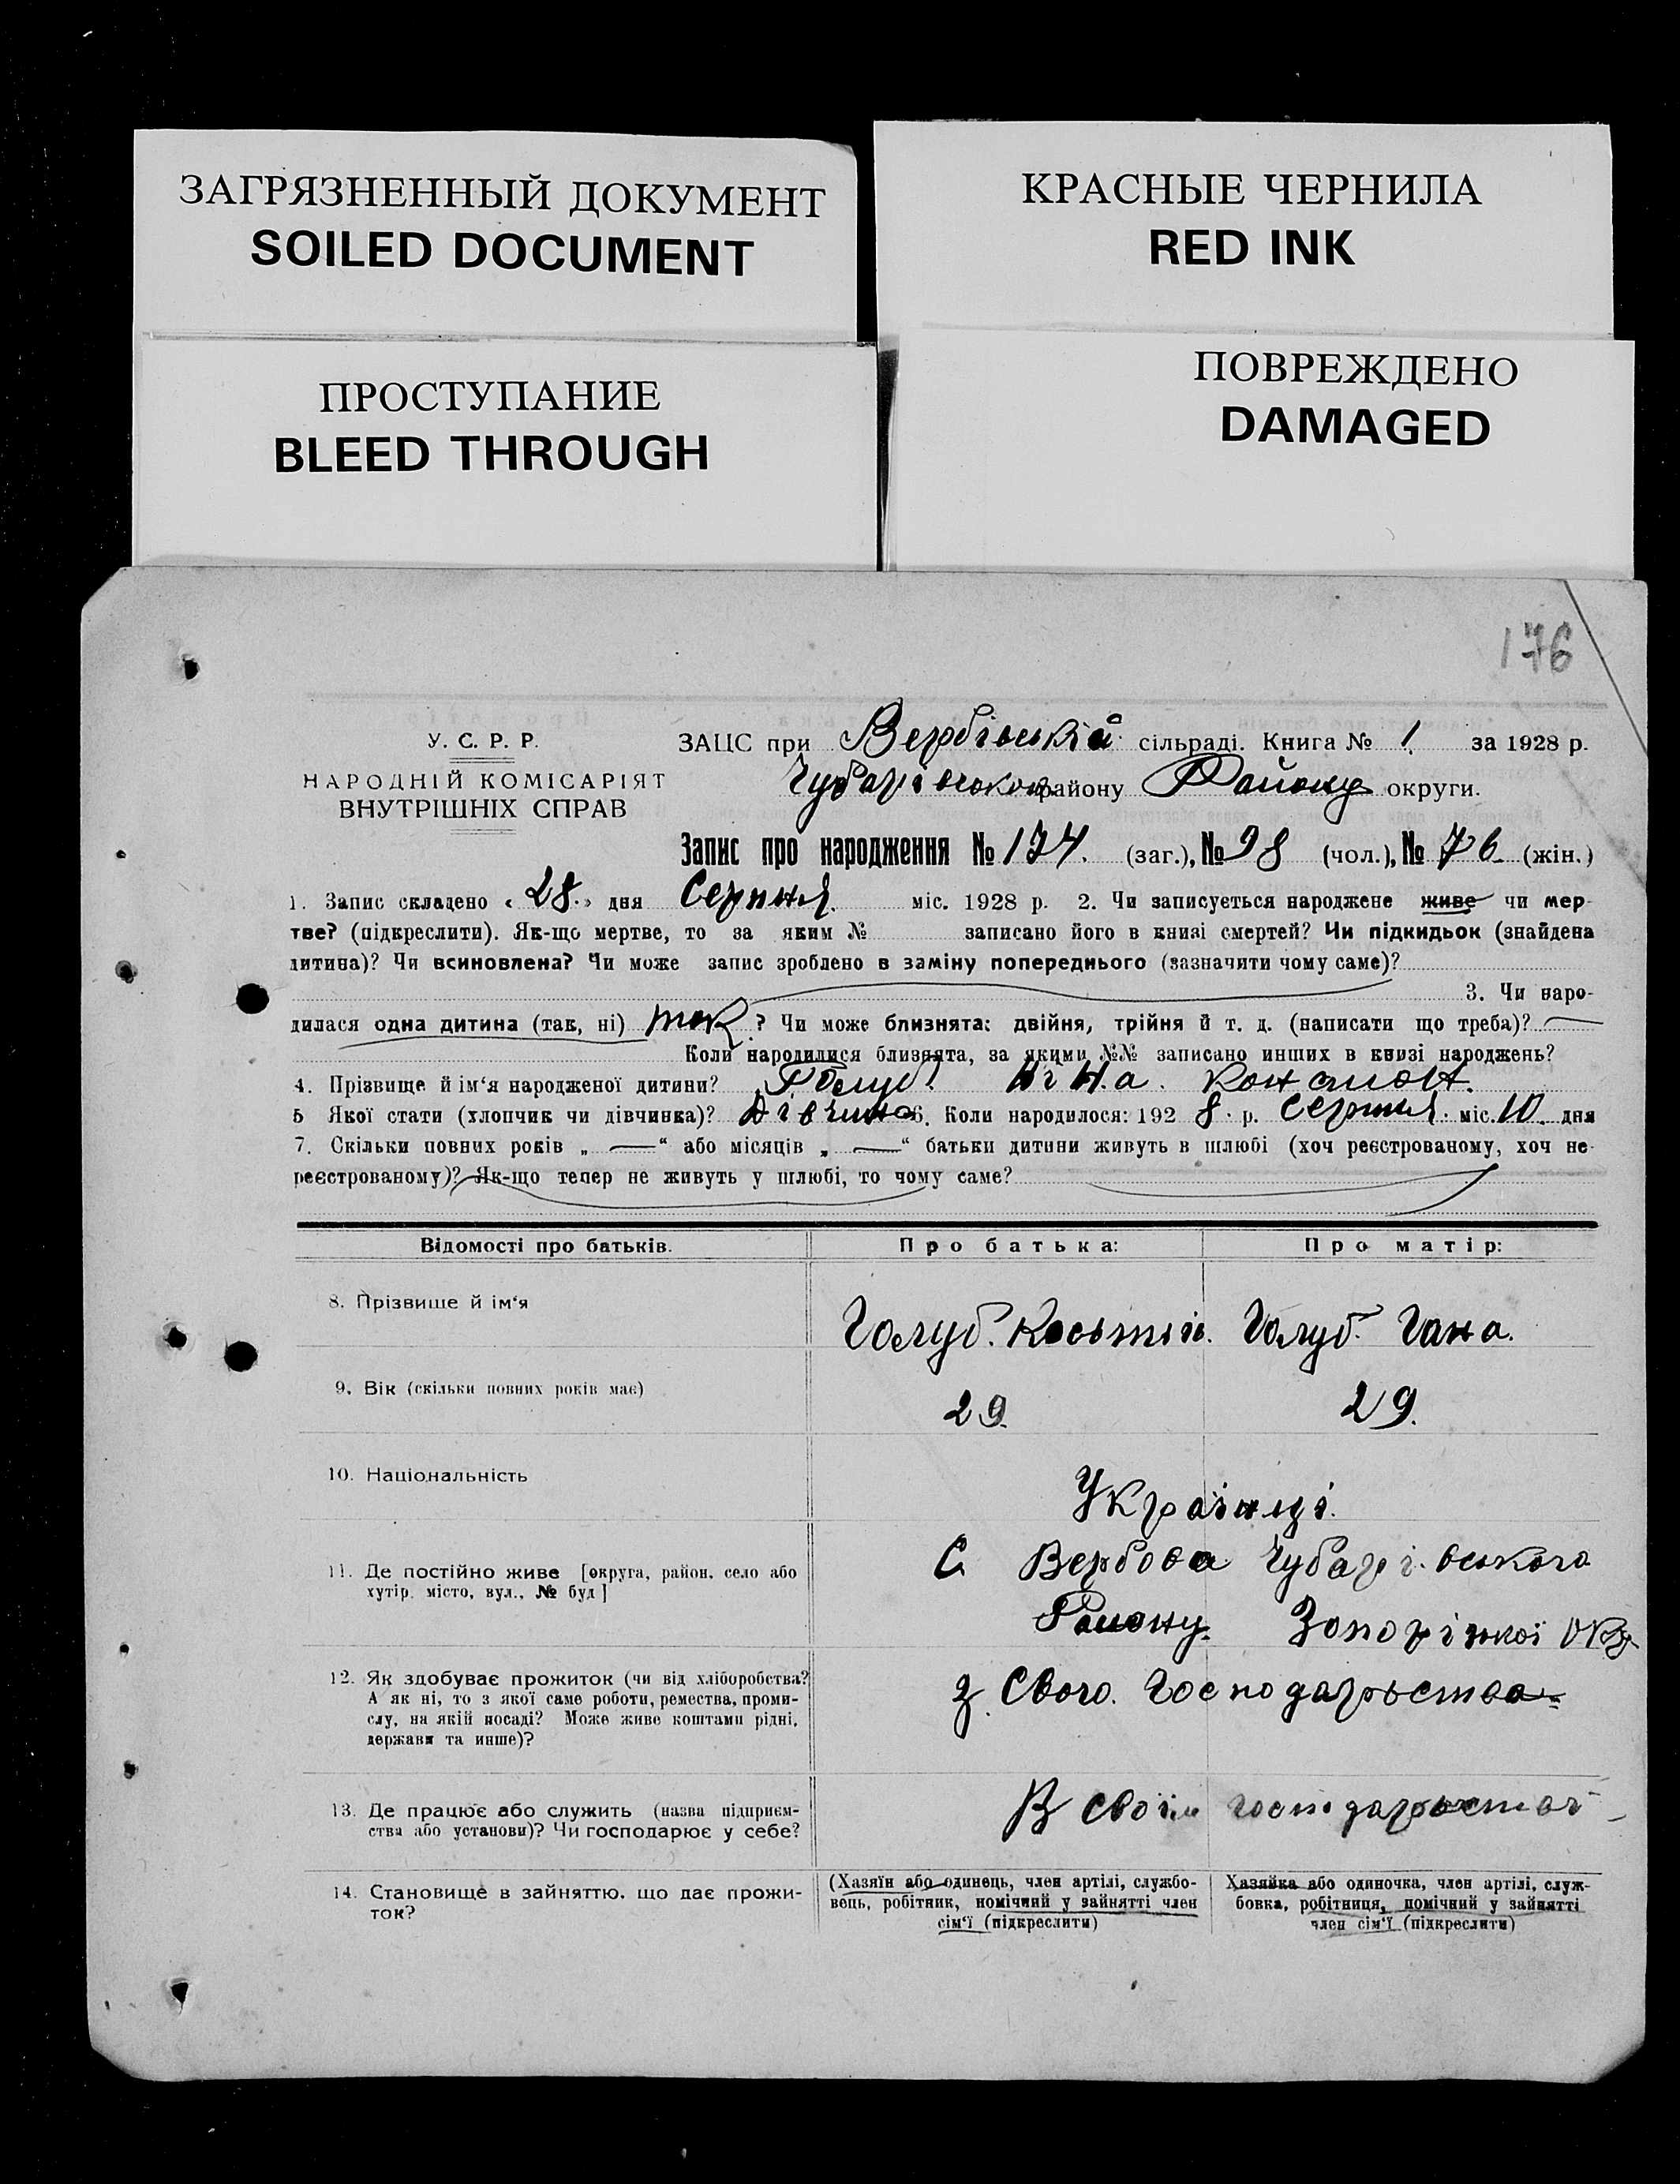 ЗАГРЯЗНЕННЫЙ ДОКУМЕНТ
SOILED DOCUMENT
КРАСНЫЕ ЧЕРНИЛА
RED INK
ПРОСТУПАНИЕ
BLEED THROUGH
ПОВРЕЖДЕНО
DAMAGED
176
У. С. Р. Р.
НАРОДНІЙ КОМІСАРІЯТ
ВНУТРІШНІХ СПРАВ
ЗАЦС при Вербівській сільраді. Книга № 1 за 1928 р.
Чубарівського району Району округи.
Запис про народження № 174. (заг.), № 98 (чол.), № 76 (жін.)
1. Запис складено « 28. » дня Серпня. міс. 1928 р. 2. Чи записується народжене живе чи мер-
тве? (підкреслити). Як-що мертве, то за яким № записано його в книзі смертей? Чи підкидьок (знайдена
дитина)? Чи всиновлена? Чи може запис зроблено в заміну попереднього (зазначити чому саме)?
3. Чи наро-
дилася одна дитина (так, ні) так ? Чи може близнята: двійня, трійня й т. д. (написати що треба)?
Коли народилися близнята, за якими №№ записано инших в книзі народжень?
4. Прізвище й ім‘я народженої дитини? Голуб. Ніна.
5 Якої стати (хлопчик чи дівчинка)? Дівчина 6. Коли народилося: 192 8 р. Серпня міс. 10. дня
7. Скільки повних років „ — “ або місяців „ — “ батьки дитини живуть в шлюбі (хоч реєстрованому, хоч не-
реєстрованому)? Як-що тепер не живуть у шлюбі, то чому саме?
Відомості про батьків. Про батька: Про матір:
8. Прізвище й ім‘я Голуб. Косьтя. Голуб. Гана.
9. Вік (скільки повних років має) 29. 29.
10. Національність Українці.
11. Де постійно живе [округа, район, село або
хутір, місто, вул., № буд]
С. Вербова Чубарівського
Району. Запорізької Окр.
12. Як здобуває прожиток (чи від хліборобства?
А як ні, то з якої саме роботи, ремества, проми-
слу, на якій посаді? Може живе коштами рідні,
держави та инше)?
з Свого. Господарьства.
13. Де працює або служить (назва підприєм-
ства або установи)? Чи господарює у себе?
В своім господарьстві
14. Становище в зайняттю, що дає прожи-
ток?
(Хазяїн або одинець, член артілі, службо-
вець, робітник, помічний у зайнятті член
сім‘ї (підкреслити)
Хазяйка або одиночка, член артілі, служ-
бовка, робітниця, помічний у зайнятті
член сім‘ї (підкреслити)